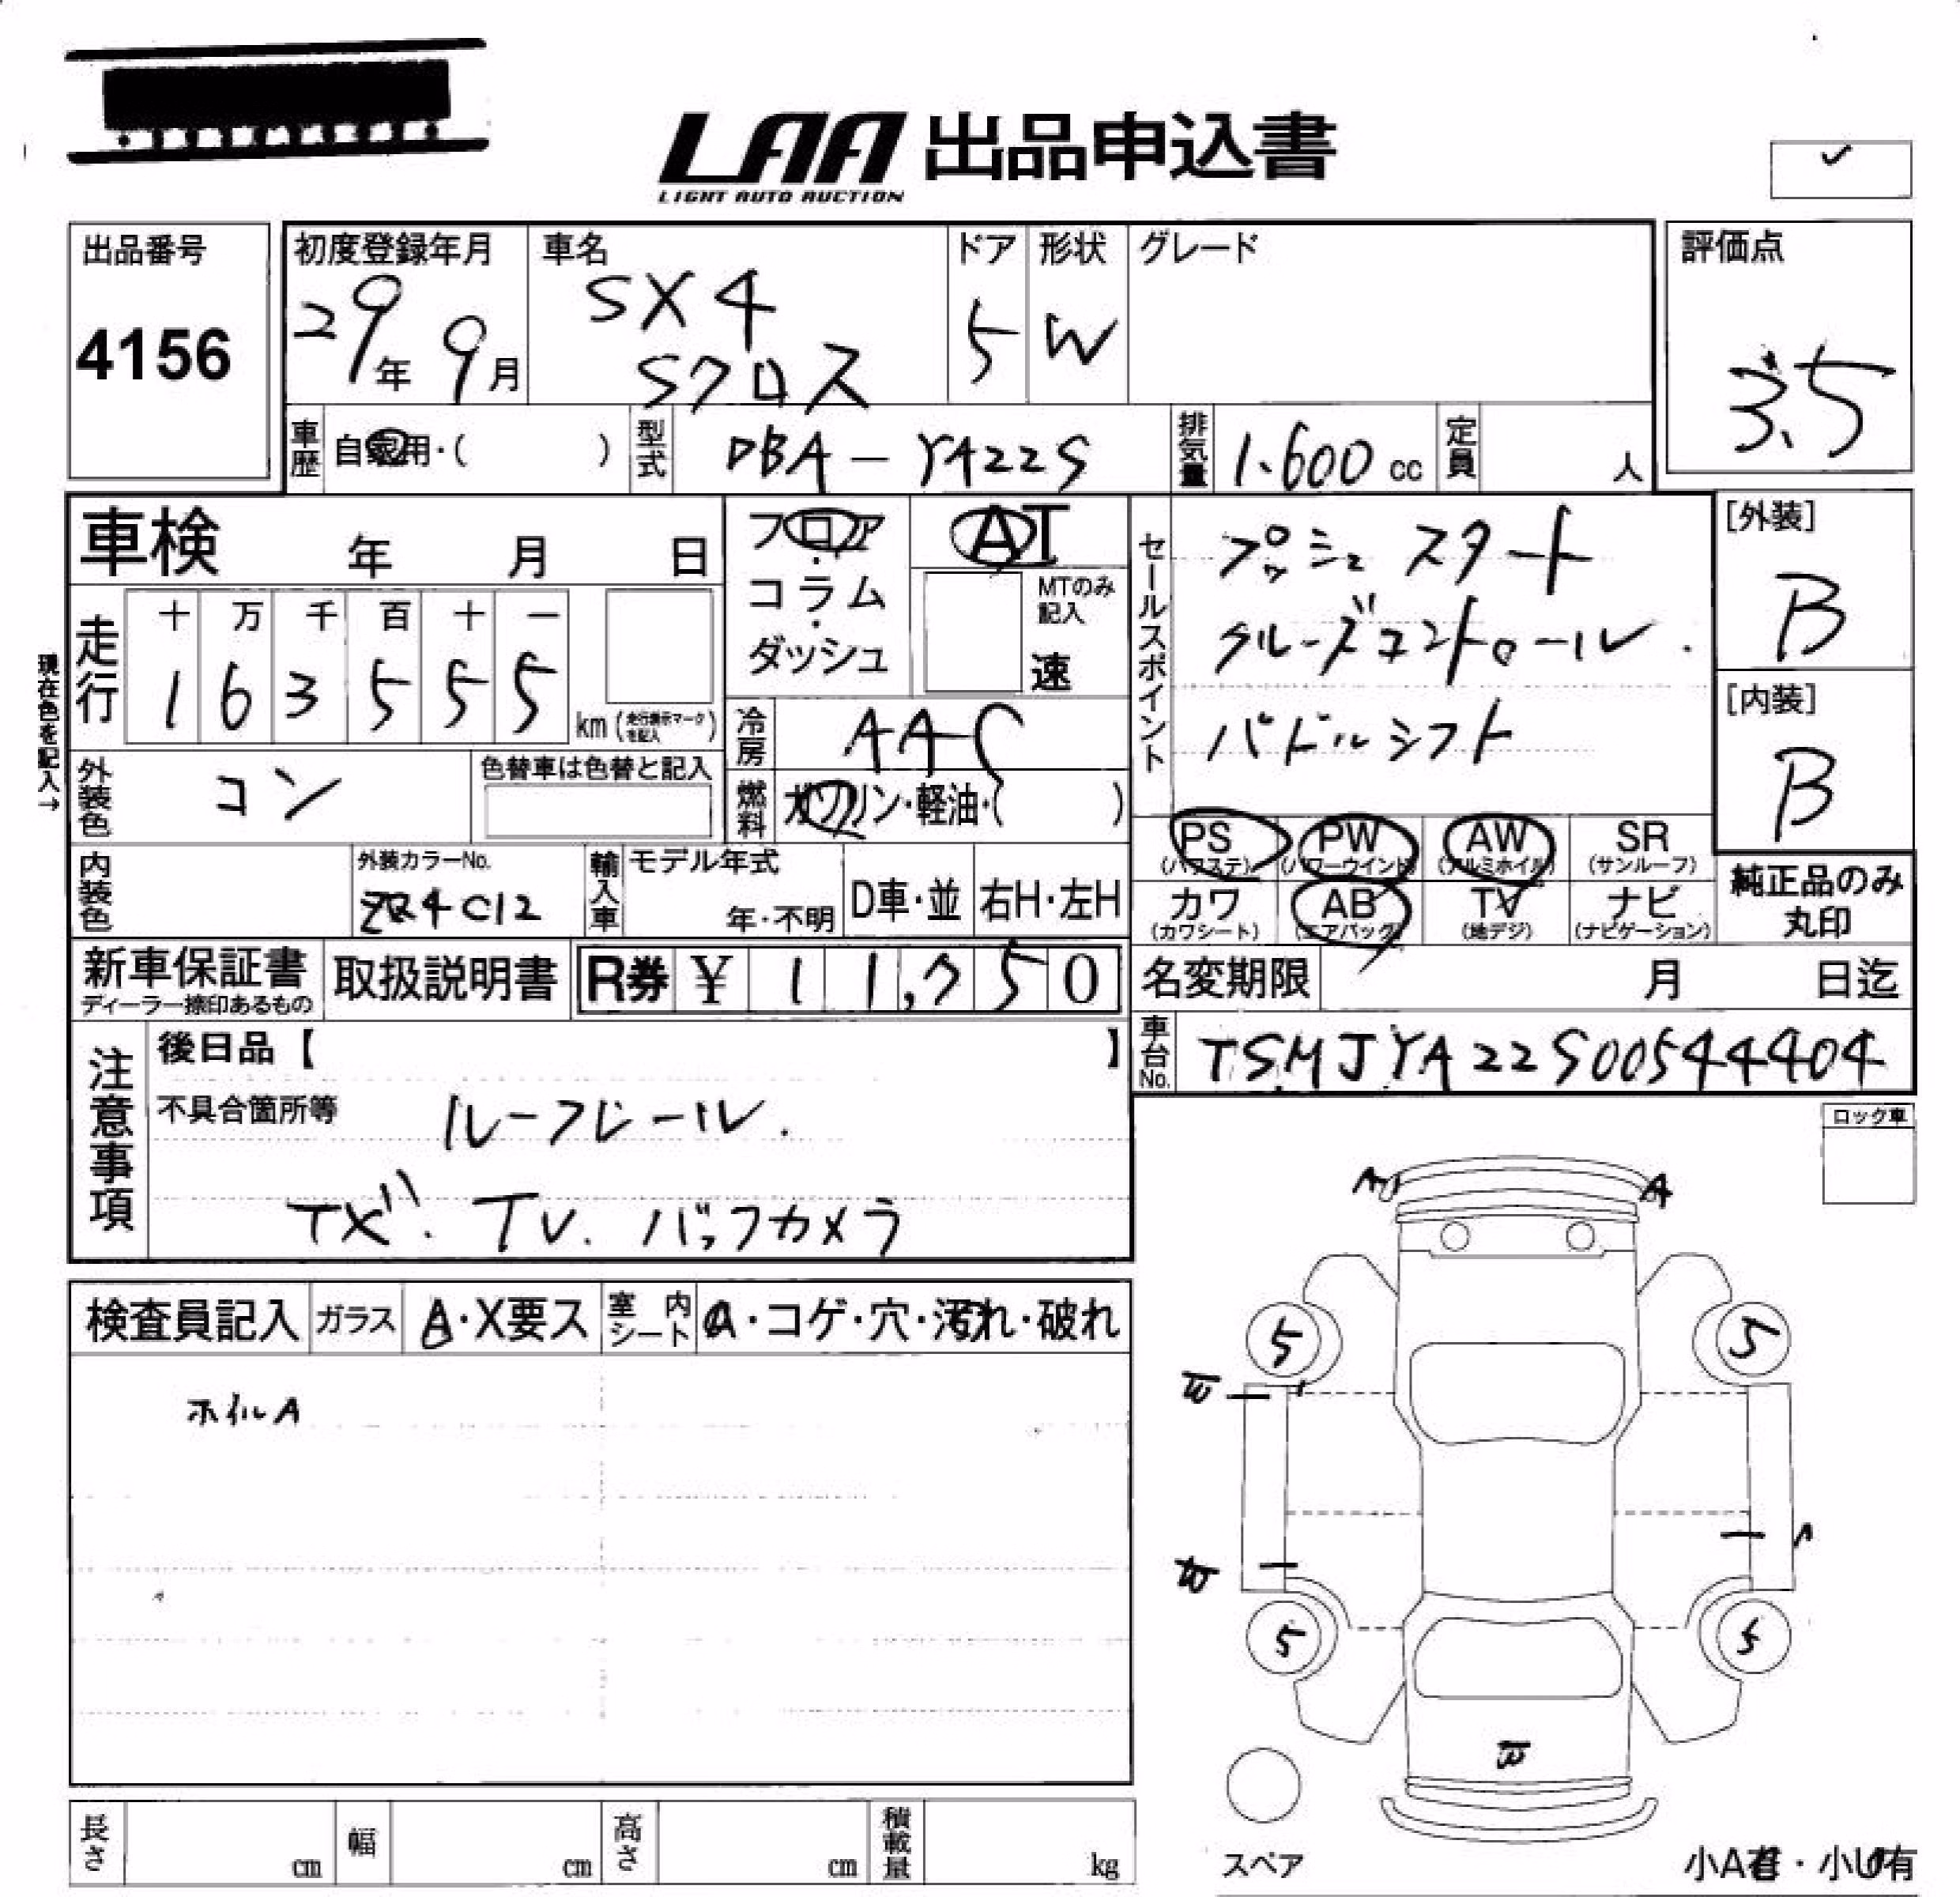 LAA 出品申込書
LIGHT AUTO AUCTION
出品番号
4156
初度登録年月
29年 9月
車名
SX4
Sクロス
ドア
5
形状
W
グレード
評価点
3.5
車歴
自家用・( )
型式
DBA-YA22S
排気量
1.600 cc
定員
人
車検 年 月 日
フロア
コラム
ダッシュ
AT
MTのみ記入
速
現在色を記入→
走行
十 万 千 百 十 一
1 6 3 5 5 5
km (走行表示マークを記入)
冷房
AAC
燃料
ガソリン・軽油・( )
外装色
コン
色替車は色替と記入
内装色
外装カラーNo.
輸入車
モデル年式
年・不明
D車・並
右H・左H
セールスポイント
プッシュ スタート
クルーズコントロール.
パドルシフト
[外装]
B
[内装]
B
PS (パワステ)
PW (パワーウインド)
AW (アルミホイル)
SR (サンルーフ)
カワ (カワシート)
AB (エアバック)
TV (地デジ)
ナビ (ナビゲーション)
純正品のみ
丸印
新車保証書
ディーラー捺印あるもの
取扱説明書
R券 ¥ 11,750
名変期限 月 日迄
車台No.
TSMJYA22S00544404
注意事項
後日品【 】
不具合箇所等
ルーフレール.
TV. バックカメラ
ロック車
検査員記入
ガラス
A・X要ス
室内シート
A・コゲ・穴・汚れ・破れ
ホイルA
A
A
5
5
5
5
スペア
長さ cm
幅 cm
高さ cm
積載量 kg
小A有・小U有